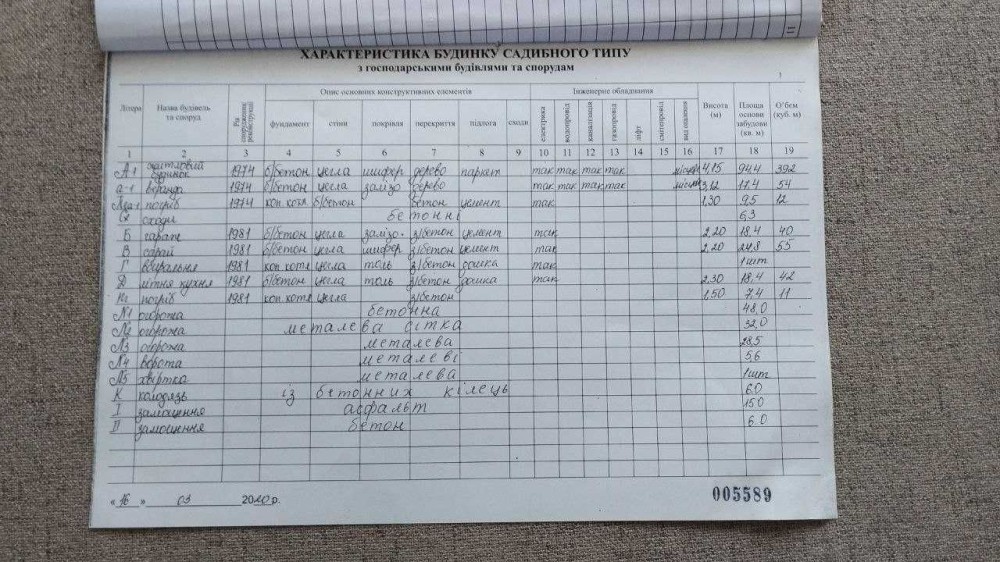 ХАРАКТЕРИСТИКА БУДИНКУ САДИБНОГО ТИПУ
з господарськими будівлями та спорудам
1
Літера Назва будівель та споруд Рік Опис основних конструктивних елементів Інженерне обладнання Висота (м) Площа основи забудови (кв. м) О'бєм (куб. м)
фундамент стіни покрівля перекриття підлога сходи електрика водопровід каналізація газопровід ліфт сміттєпровід вид опалення
1 2 3 4 5 6 7 8 9 10 11 12 13 14 15 16 17 18 19
А-1 житловий будинок 1974 б/бетон цегла шифер дерево паркет так так так так 4,15 94,4 392
а-1 веранда 1974 б/бетон цегла залізо дерево так так так так 3,12 17,4 54
погріб 1974 коп. котл б/бетон бетон цемент так 1,30 9,5 12
сходи бетонні 6,3
Б гараж 1981 б/бетон цегла залізо з/бетон цемент так 2,20 18,4 40
В сарай 1981 б/бетон цегла шифер з/бетон цемент так 2,20 24,8 55
Г вбиральня 1981 коп. котл цегла толь з/бетон дошка так 1 шт
Д літня кухня 1981 б/бетон цегла толь з/бетон дошка так 2,30 18,4 42
погріб 1981 коп. котл цегла з/бетон 1,50 7,4 11
№1 огорожа бетонна 48,0
№2 огорожа металева сітка 32,0
№3 огорожа металева 28,5
№4 ворота металеві 5,6
№5 хвіртка металева 1 шт
К колодязь із бетонних кілець 6,0
І замощення асфальт 15,0
ІІ замощення бетон 6,0
« 16 » 03 2010 р.
005589